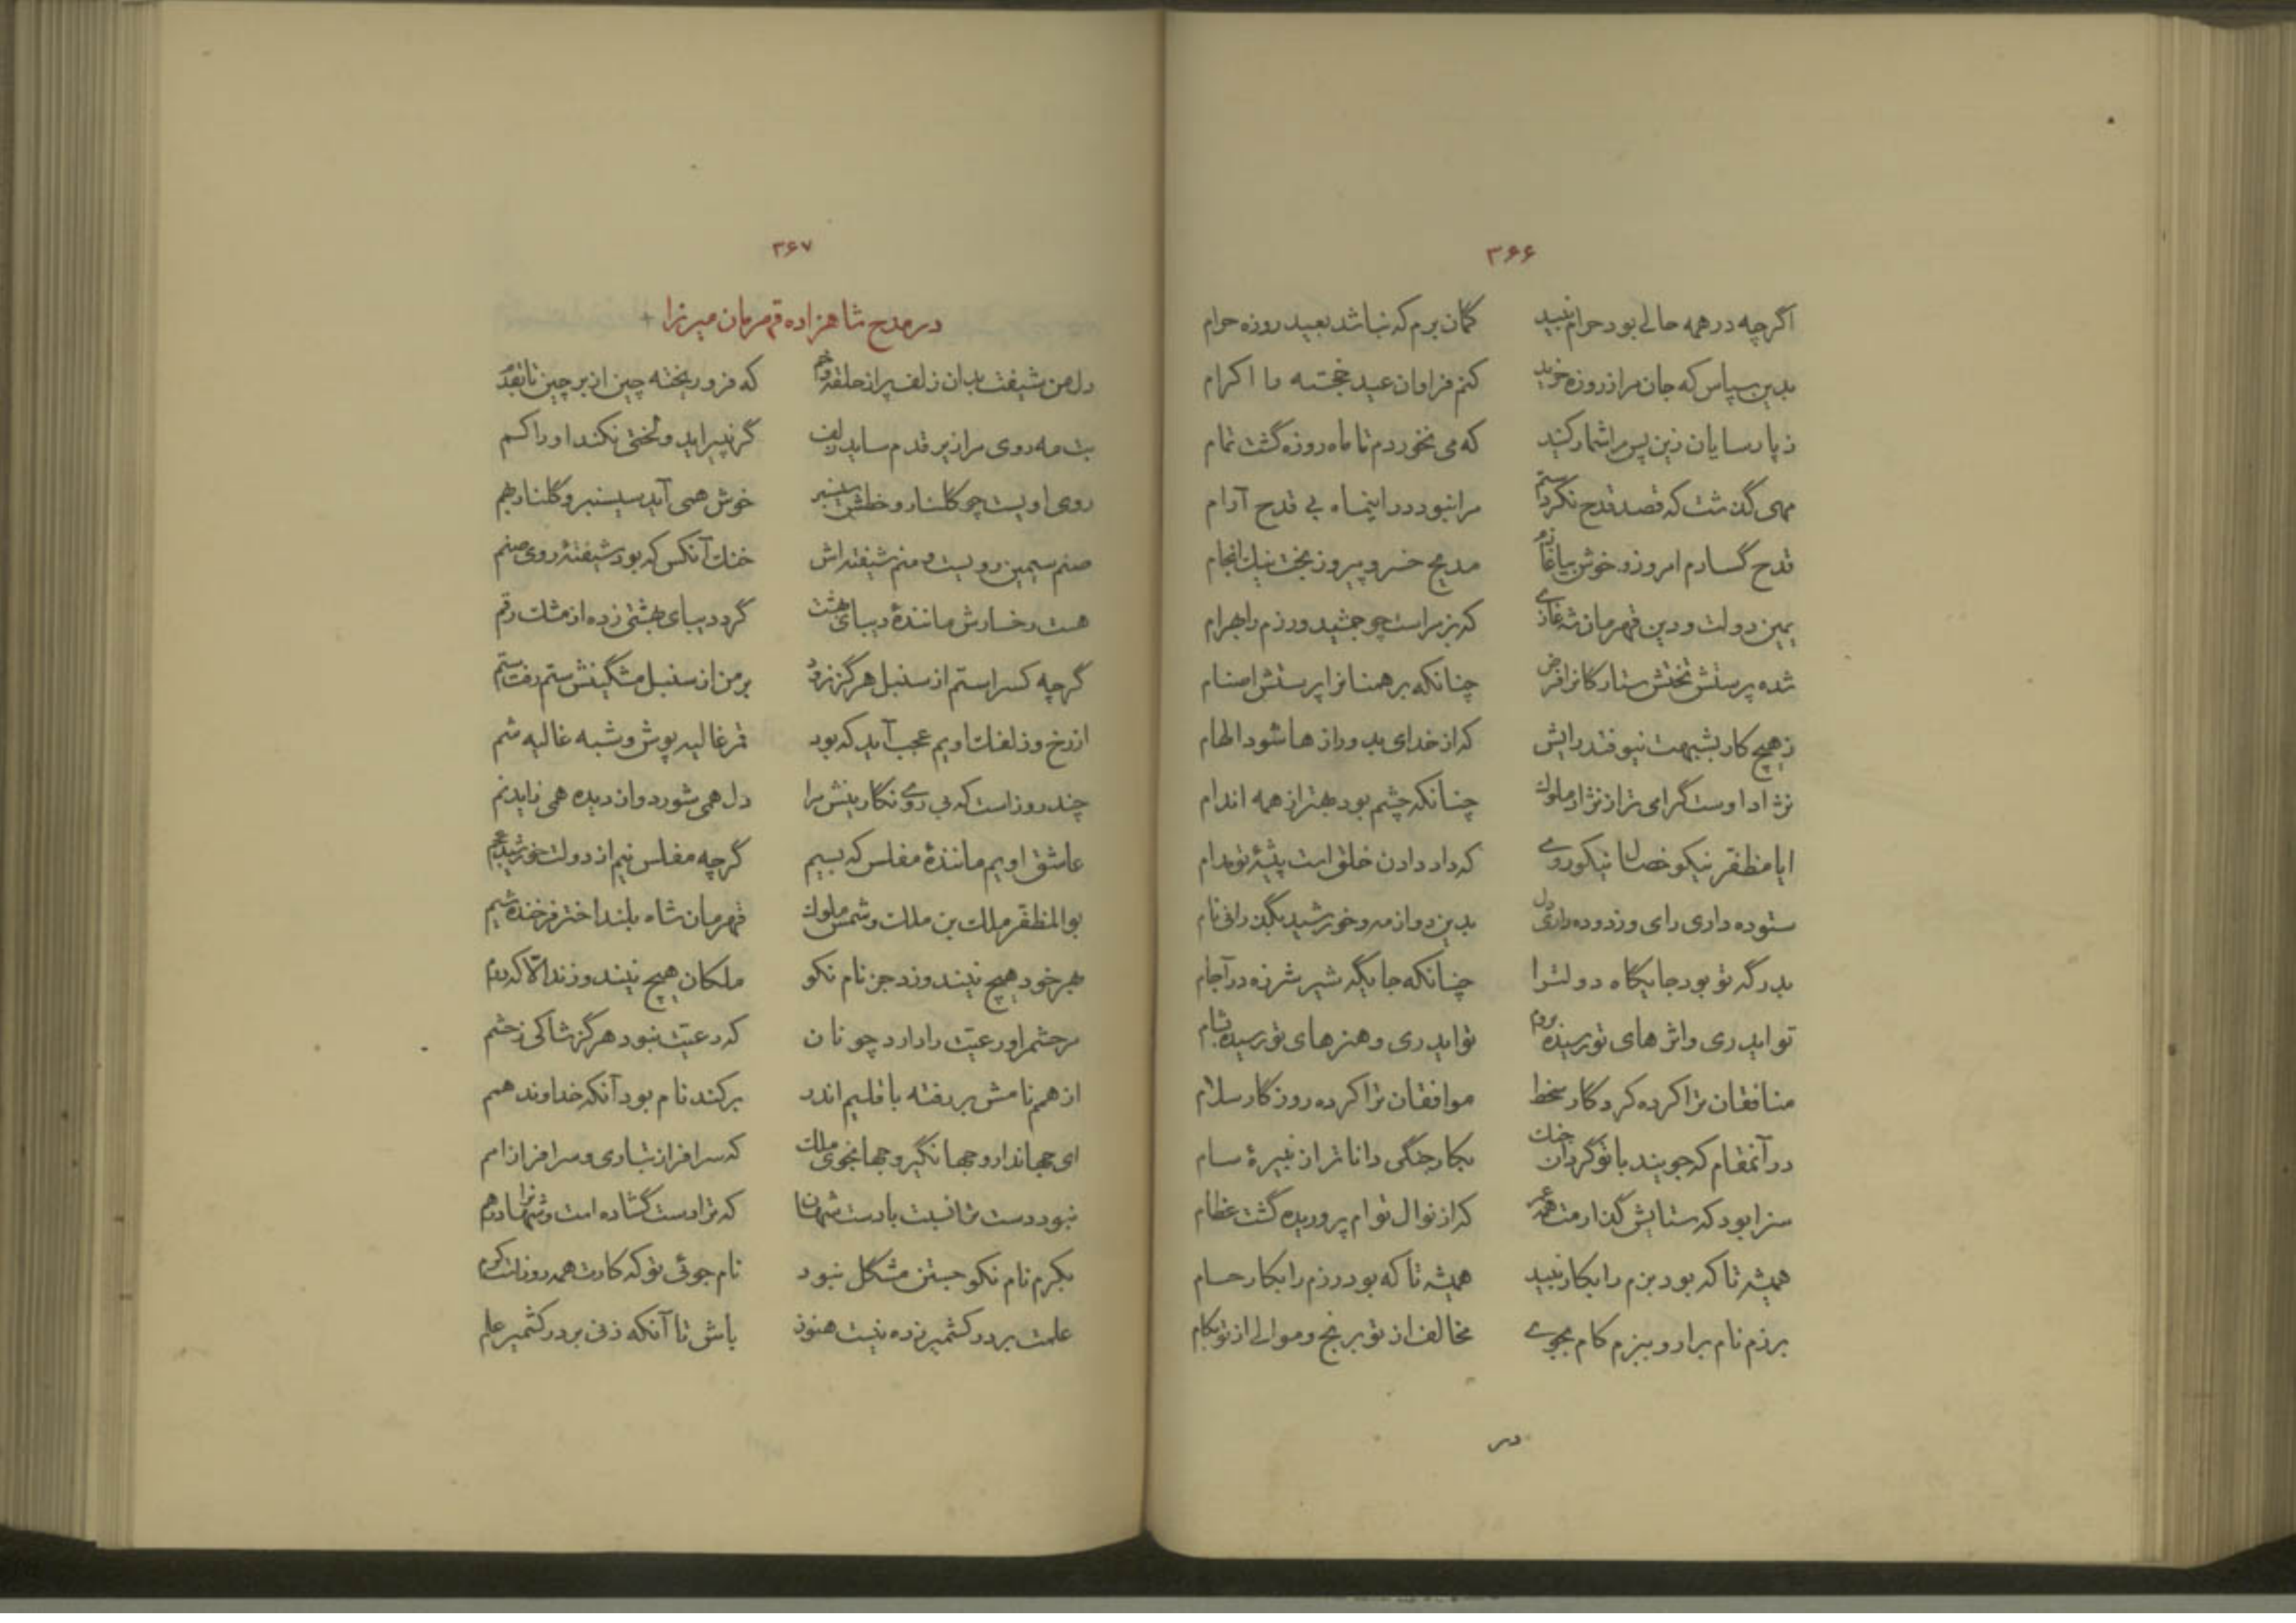 ۳۶۶
اگرچه در همه حالی بود حرام نبید گمان برم که نباشد بعید روزه حرام
بدین سپاس که جان مرا ز روزه خرید کنم فراوان عید خجسته را اکرام
ز پارسایان زین پس مرا شمار کنید که می نخوردم تا ماه روزه گشت تمام
مهی گذشت که قصد قدح نکردستم مرا نبود در اینماه بی قدح آرام
قدح گسارم امروز و خوش بیاغازم مدیح خسرو پیروزبخت نیک انجام
یمین دولت و دین قهرمان شه غازی که بزم راست چو جمشید و رزم را بهرام
شده پرستش تختش ستارگانرا فرض چنانکه برهمنانرا پرستش اصنام
ز هیچ کار بشبهت نیوفتد رایش که از خدای بدو رازها شود الهام
نژاد اوست گرامی‌تر از نژاد ملوک چنانکه چشم بود بهتر از همه اندام
ایا مظفر نیکو خصال نیکوروی که داد دادن خلق است پیشهٔ تو مدام
ستوده داری رای و زدوده داری دل بدین دو از مه و خورشید بگذرانی نام
بدرگه تو بود جایگاه دولترا چنانکه جایگه شیر شرزه در آجام
تو ایدری و اثرهای تو رسیده بروم تو ایدری و هنرهای تو رسیده بشام
منافقان ترا کرده کردگار سخط موافقان ترا کرده روزگار سلام
در آنمقام که جویند با تو گردان جنگ بکار جنگی داناتر از نبیرهٔ سام
سزا بود که ستایش گذارمت همه عمر که از نوال توام پروریده گشت عظام
همیشه تا که بود بزم را بکار نبید همیشه تا که بود رزم را بکار حسام
برزم نام برار و ببزم کام بجوی مخالف از تو برنج و موالی از تو بکام
در
۳۶۷
در مدح شاهزاده قهرمان میرزا
دل من شیفت بدان زلف پر از حلقه و خم که فرو ریخته چین از بر چین تا بقدم
بت مه روی مرا زیر قدم ساید زلف گر نپیراید و لختی نکند او را کم
روی او یست چو گلنار و خطش سیسنبر خوش همی آید سیسنبر و گلنار بهم
صنم سیمین رویست و منم شیفته‌اش خنک آنکس که بود شیفتهٔ روی صنم
هست رخسارش مانندهٔ دیبای بهشت گر دیبای بهشتی زده از مشک رقم
گرچه کسرا ستم از سنبل هرگز نرود بر من از سنبل مشگینش ستم رفت ستم
از رخ و زلفک اویم عجب آید که بود قمر غالیه پوش و شبه غالیه شم
چند روز است که بی روی نگارینش مرا دل همی شورد و از دیده همی زاید نم
عاشق اویم مانندهٔ مفلس که بسیم گرچه مفلس نیم از دولت خورشید عجم
بوالمظفر ملک بن ملک و شمس ملوک قهرمان شاه بلند اختر فرخنده شیم
بهر خود هیچ نبندوزد جز نام نکو ملکان هیچ نیندوزند الا که درم
مر حشم را و رعیت را دارد چونان که رعیت نبود هرگز شاکی ز حشم
از همم نامش بر رفته باقلیم اندر برکند نام بود آنکه خداوند همم
ای جهاندار و جهانگیر و جهانجوی ملک که سرافراز تباری و سرافراز امم
نبود دست ترا نسبت با دست شهان که ترا دست گشاده است و شهانرا درهم
بکرم نام نکو جستن مشکل نبود نام جوئی تو که کارت همه روز است کرم
علمت بر در کشمیر زده نیست هنوز باش تا آنکه زنی بر در کشمیر علم